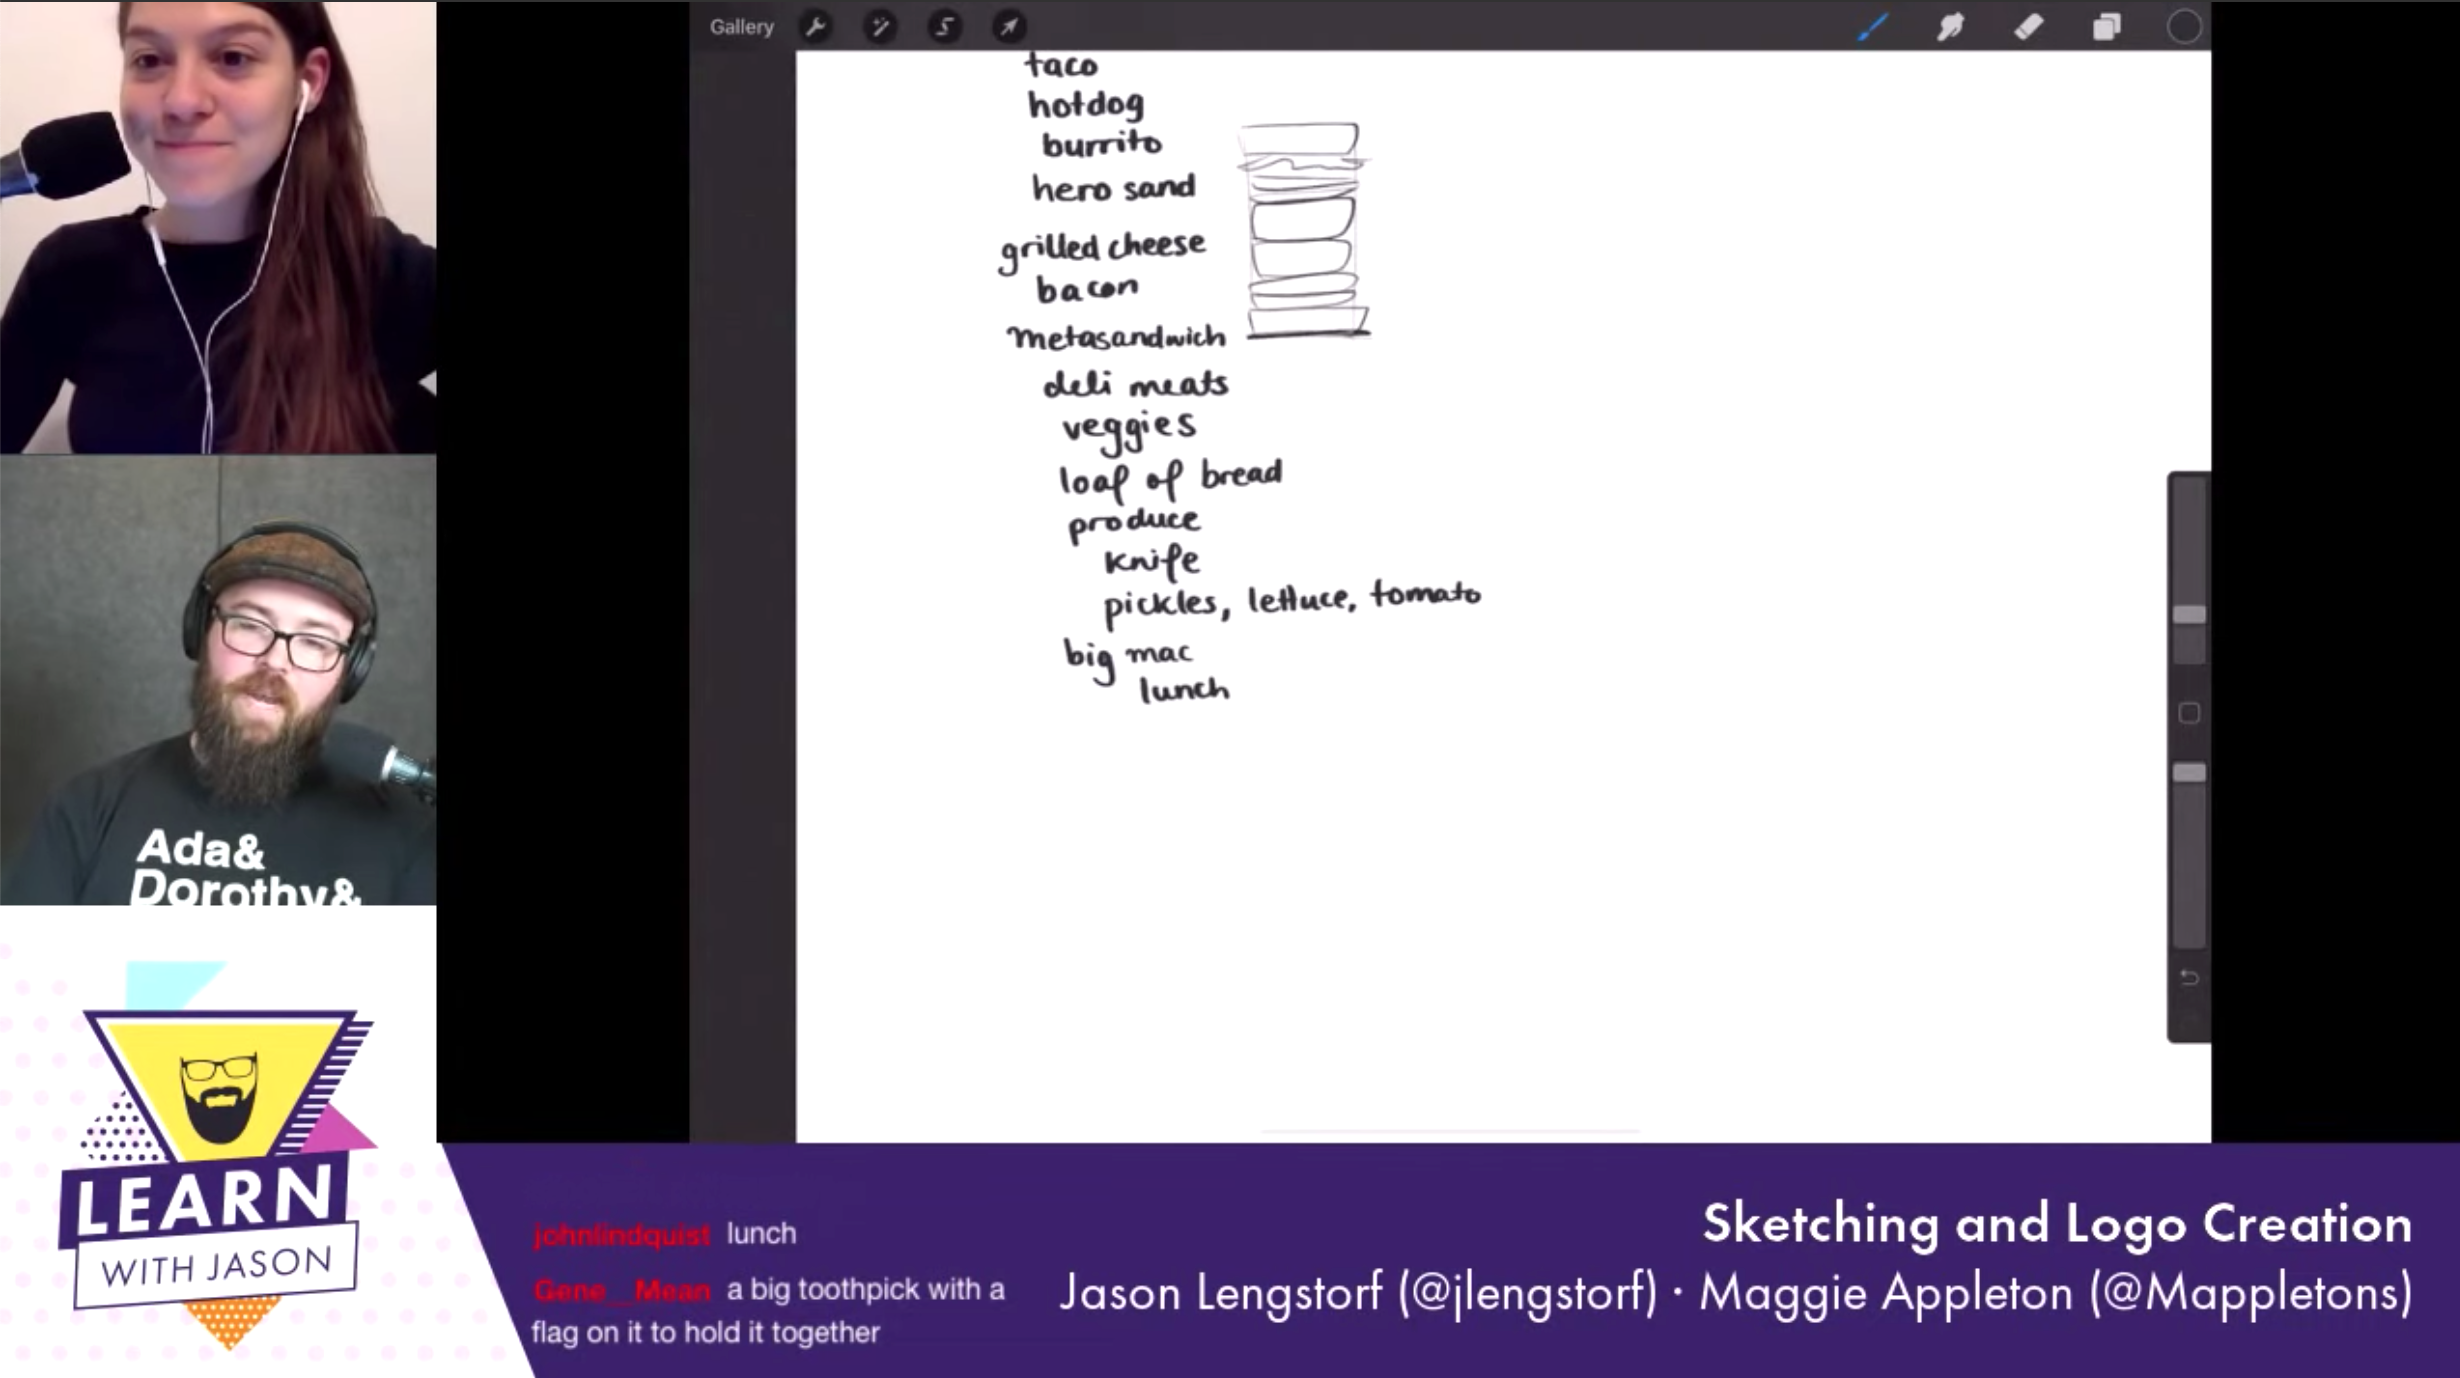 Gallery
taco
hotdog
burrito
hero sand
grilled cheese
bacon
metasandwich
deli meats
veggies
loaf of bread
produce
knife
pickles, lettuce, tomato
big mac
lunch
Ada&
Dorothy&
LEARN
WITH JASON
johnlindquist lunch
Gene__Mean a big toothpick with a
flag on it to hold it together
Sketching and Logo Creation
Jason Lengstorf (@jlengstorf) · Maggie Appleton (@Mappletons)